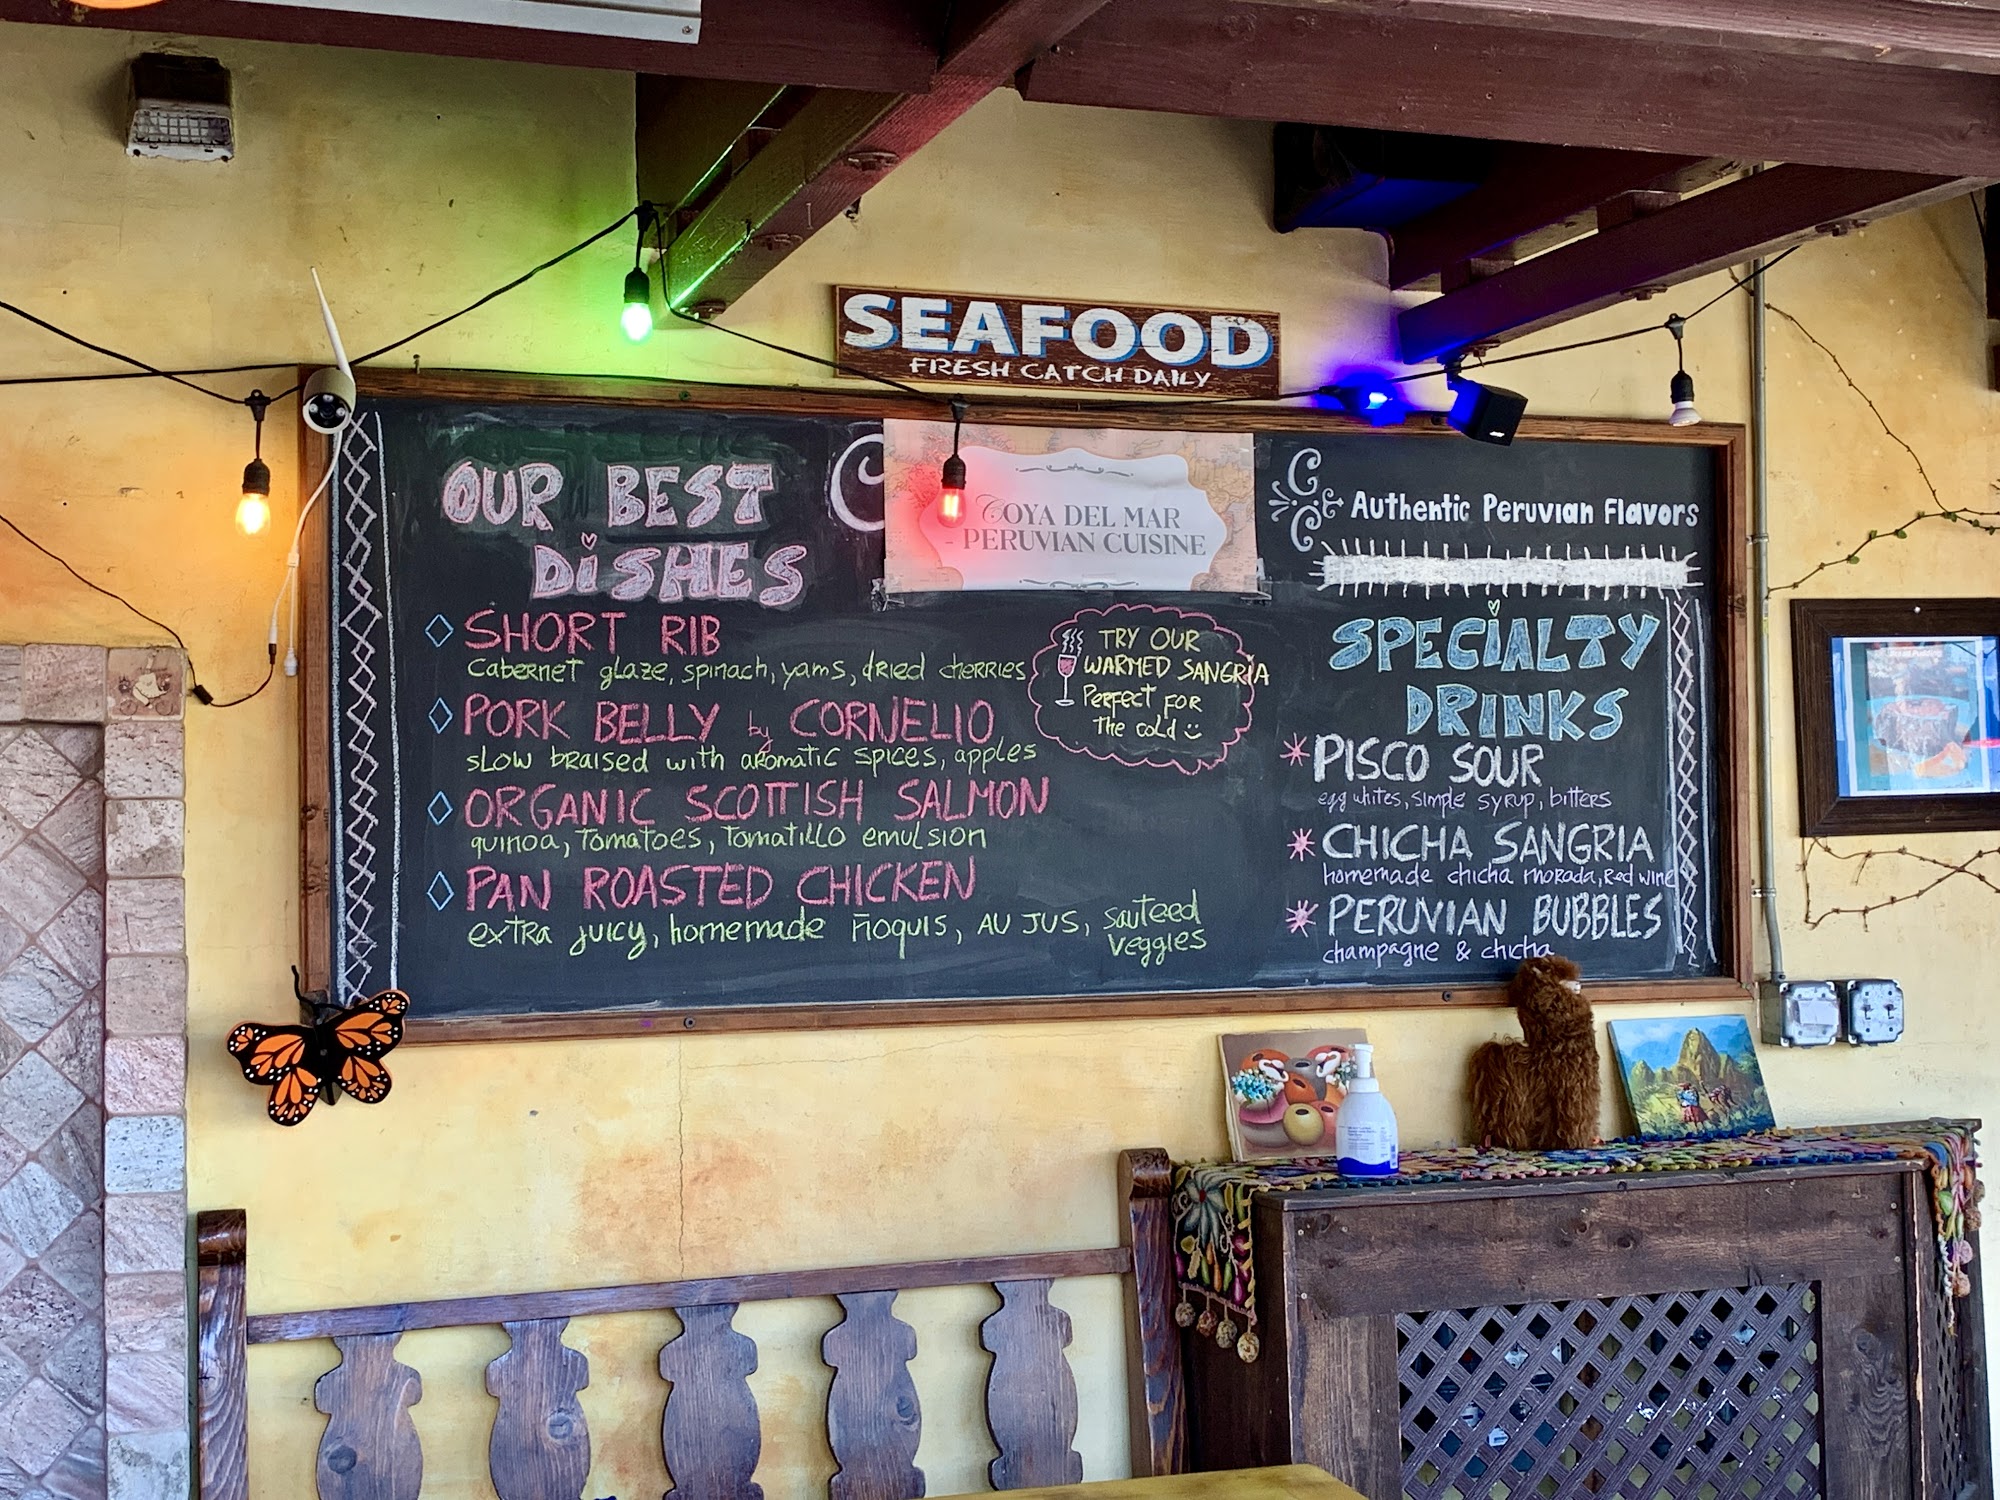 SEAFOOD
FRESH CATCH DAILY
OUR BEST
DiSHES
COYA DEL MAR
- PERUVIAN CUISINE
Authentic Peruvian Flavors
SHORT RIB
Cabernet glaze, spinach, yams, dried cherries
PORK BELLY by CORNELIO
slow braised with aromatic spices, apples
ORGANIC SCOTTISH SALMON
quinoa, Tomatoes, Tomatillo emulsion
PAN ROASTED CHICKEN
extra juicy, homemade ñoquis, AU JUS, sauteed
veggies
TRY OUR
WARMED SANGRIA
Perfect for
The cold
SPECiALTY
DRINKS
PISCO SOUR
egg whites, simple syrup, bitters
CHICHA SANGRIA
homemade chicha morada, Red wine
PERUVIAN BUBBLES
champagne & chicha
BOSE